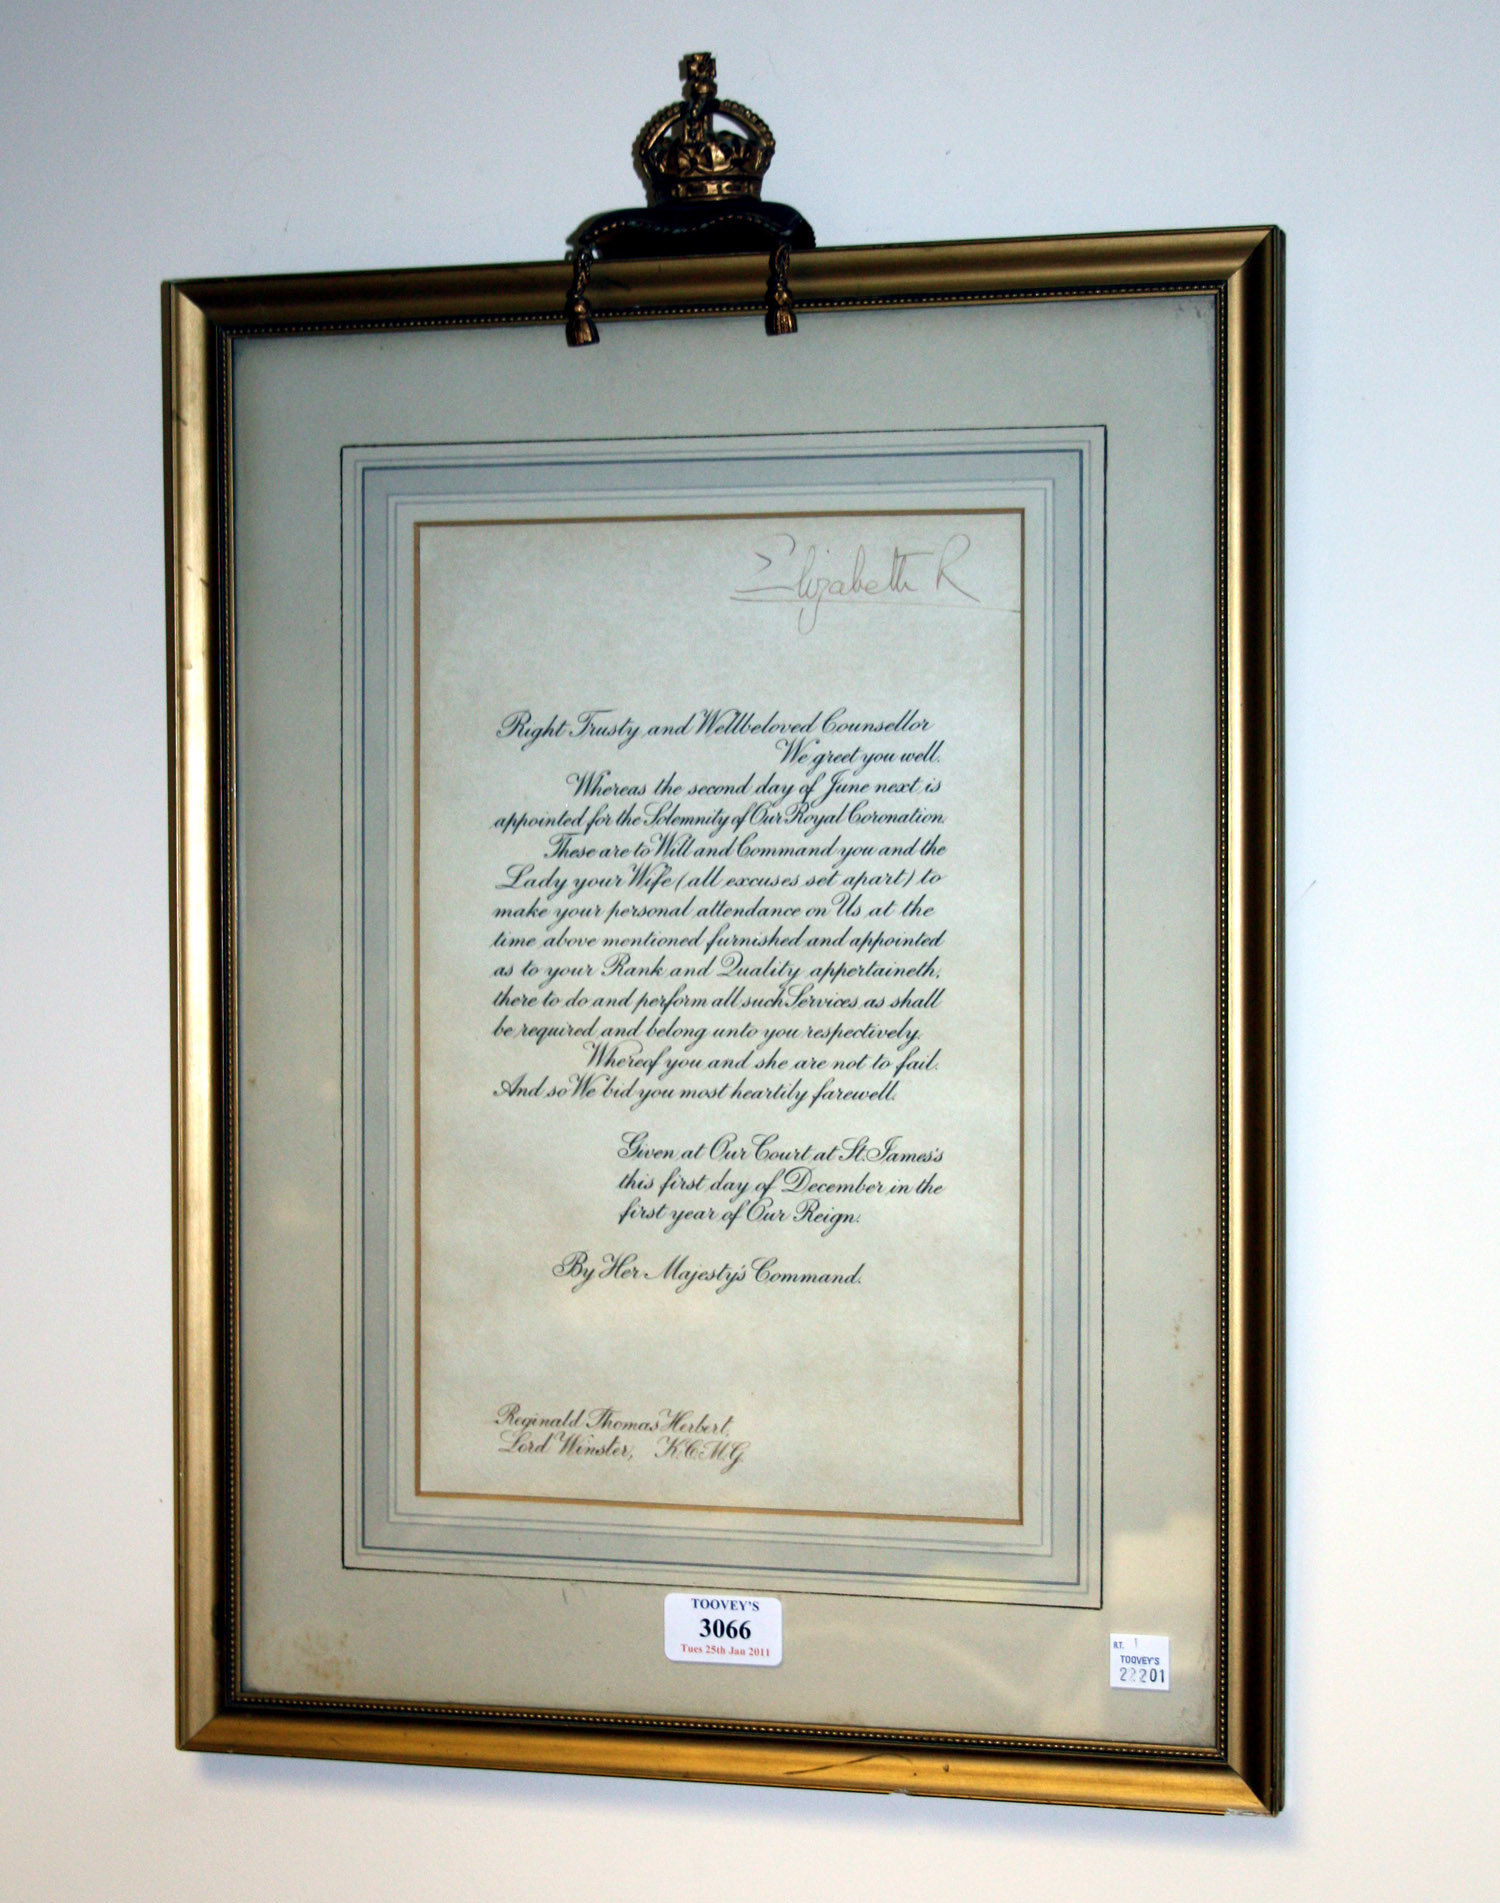 Elizabeth R
Right Trusty and Wellbeloved Counsellor
We greet you well.
Whereas the second day of June next is
appointed for the Solemnity of Our Royal Coronation.
These are to Will and Command you and the
Lady your Wife (all excuses set apart) to
make your personal attendance on Us at the
time above mentioned furnished and appointed
as to your Rank and Quality appertaineth,
there to do and perform all such Services as shall
be required and belong unto you respectively.
Whereof you and she are not to fail.
And so We bid you most heartily farewell.
Given at Our Court at St. James's
this first day of December in the
first year of Our Reign.
By Her Majesty's Command.
Reginald Thomas Herbert,
Lord Winster, K.C.M.G.
TOOVEY'S
3066
Tues 25th Jan 2011
R.T. 1
TOOVEY'S
22201